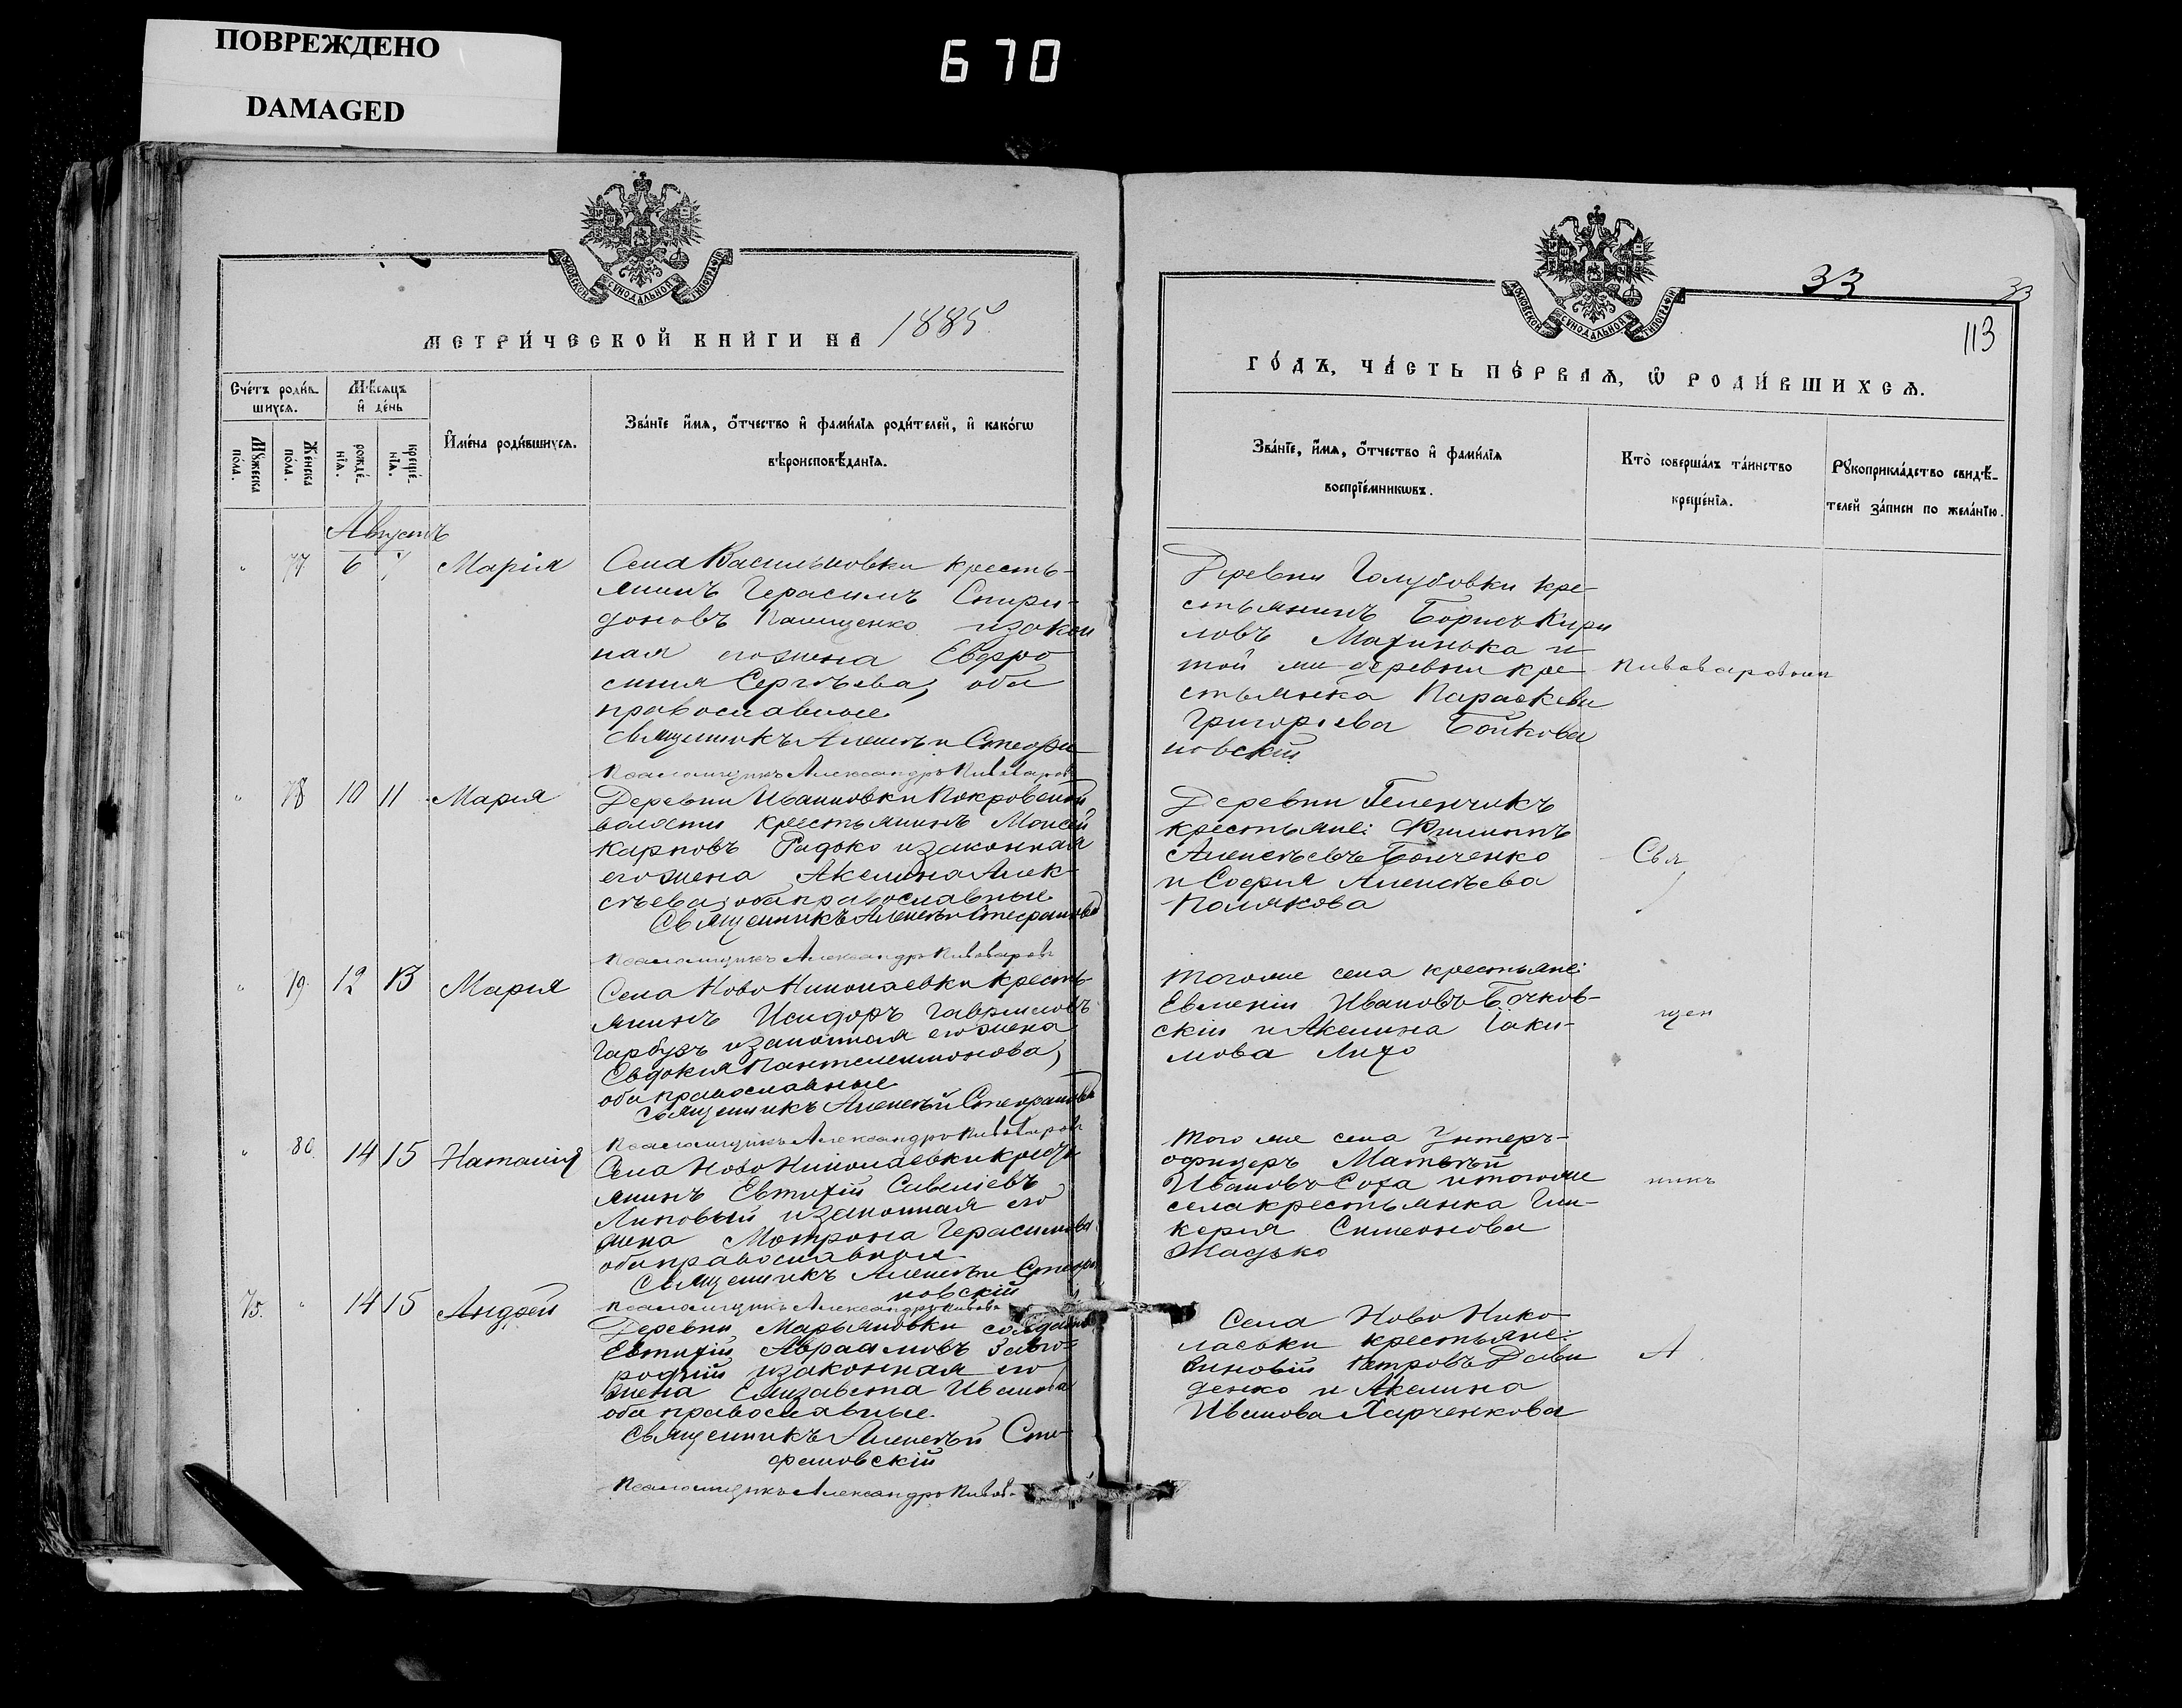 ПОВРЕЖДЕНО
DAMAGED
670
МОСКОВСКОЙ СѴНОДАЛЬНОЙ ТИПОГРАФІИ
МЕТРИ́ЧЕСКОЙ КНИ́ГИ НА 1885
Сче́тъ роди́в-
шихся.
Мѣ́сяцъ
и҆ де́нь
Мꙋ́жеска
по́ла.
Же́нска
по́ла.
рожде́-
нїѧ.
креще́-
нїѧ.
И҆мена̀ роди́вшихсѧ.
Зва́нїе и҆́мѧ, ѻ҆́тчество и҆ фами́лїѧ роди́телей, и҆ како́гѡ
вѣроисповѣ́данїѧ.
Августъ
" 77 6 7 Марія
Села Васильковки кресть-
янинъ Герасимъ Спири-
доновъ и закон
ная его жена Евфро
синия Сергѣева, оба
православные
Священникъ Алексѣй Стефа
Псаломщикъ Александръ Пивоваров
" 78 10 11 Мария
Деревни Ивановки Покровской
волости крестьянинъ Моисей
Карповъ Радько и законная
его жена Акелина Алек-
сѣева, оба православные
Священникъ Алексѣй Стефановск
Псаломщикъ Александръ Пивоваровъ
" 79. 12 13 Мария
Села Ново Николаевки кресть-
янинъ Исидоръ Гавриловъ
Гарбузъ и законная его жена
Евдокия Пантелеимонова,
оба православные
Священникъ Алексѣй Стефановск
Псаломщикъ Александръ Пивоваров
" 80. 14 15 Наталия
Села Ново Николаевки кресть
янинъ Евтихій Савеліевъ
Липовый и законная его
жена Мотрона Герасимова
оба православные
Священникъ Алексѣй Стефа
новскій
Псаломщикъ Александръ Пивова
75. " 14 15 Андрей
Деревни Марьяновки солдатъ
Евтихій Авраамовъ Заго-
родній и законная его
жена Елизавета Иванова
оба православные.
Священникъ Алексѣй Сте-
фановскій
Псаломщикъ Александръ Пивов-
МОСКОВСКОЙ СѴНОДАЛЬНОЙ ТИПОГРАФІИ
33
33
113
ГО́ДЪ, ЧА́СТЬ ПЕ́РВАѦ, Ѡ҆ РОДИ́ВШИХСѦ.
Зва́нїе, и҆́мѧ, ѻ҆́тчество и҆ фами́лїѧ
воспрїе́мникѡвъ.
Кто̀ соверша́лъ та́инство
креще́нїѧ.
Рꙋкоприкла́дство свидѣ́-
телей за́писи по жела́нїю.
Деревни Голубовки кре-
стьянинъ Борисъ Кири
ловъ Махинька и
той же деревни кре-
стьянка Параскева
Григорьева Бойкова
новскій
Пивоваровъ
Деревни Геленчикъ
крестьяне: Филиппъ
Алексѣевъ Бойченко
и София Алексѣева
Полякова
Свя
Того же села крестьяне:
Евмений Ивановъ Бочков-
скій и Акелина Іаки-
мова Лихо
щен
Того же села Унтеръ-
офицеръ Матвѣй
Ивановъ Соха и того же
села крестьянка Гли-
керия Симеонова
Жадько
никъ
Села Ново Нико
лаевки крестьяне:
Зиновій Петровъ Дави
денко и Акелина
Иванова Харченкова
А